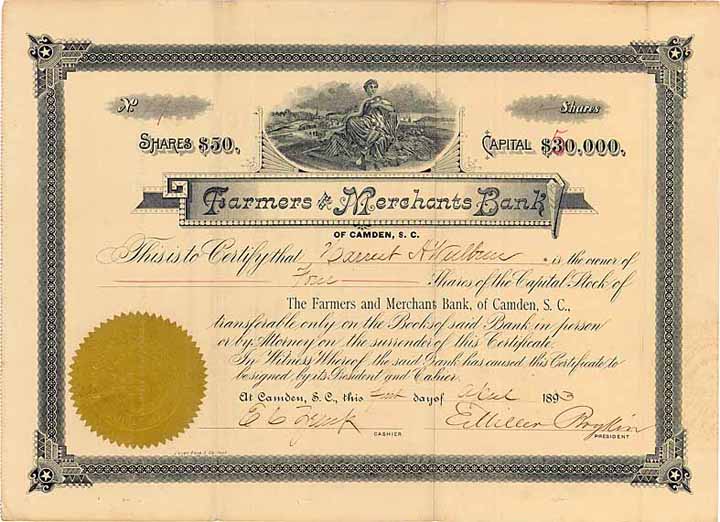 No. 7 Shares
SHARES $50. CAPITAL $50.000.
Farmers & Merchants Bank
OF CAMDEN, S. C.
This is to Certify that Harriet is the owner of
Four Shares of the Capital Stock of
The Farmers and Merchant Bank, of Camden, S. C.,
transferable only on the Books of said Bank in person
or by Attorney on the surrender of this Certificate.
In Witness Whereof, the said Bank has caused this Certificate to
be signed by its President and Cahier.
At Camden, S. C., this first day of April 1893
CASHIER
PRESIDENT